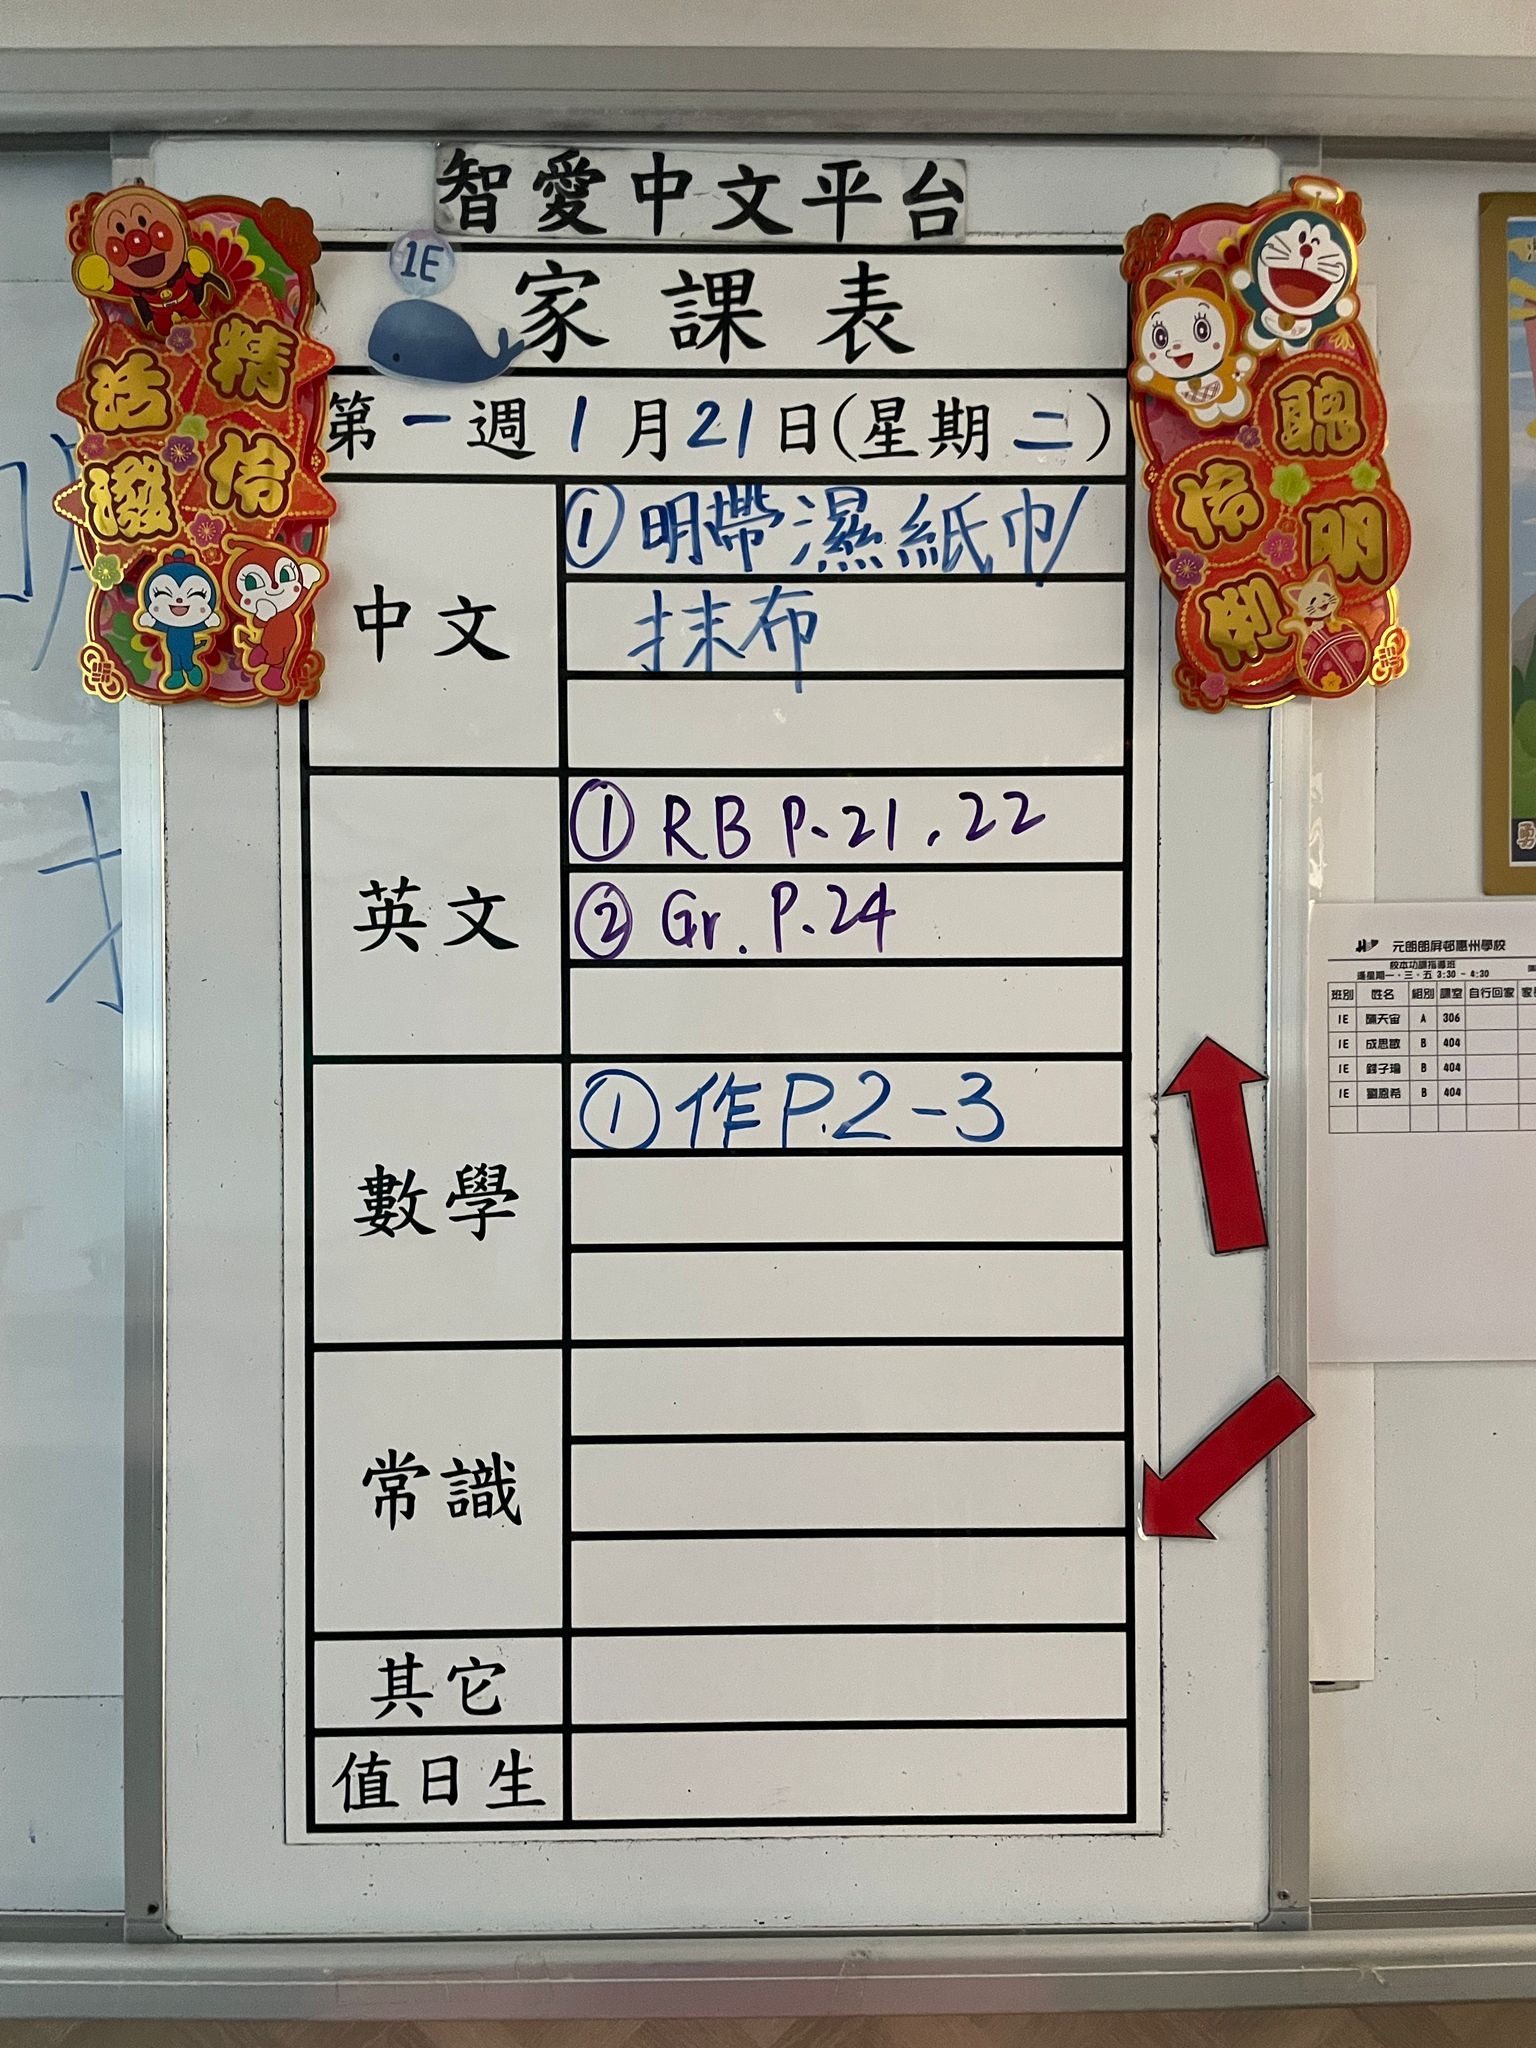 智愛中文平台
1E
家課表
第一週1月21日(星期二)
中文
① 明帶濕紙巾
抹布
英文
① RB P.21,22
② Gr. P.24
數學
① 作P.2-3
常識
其它
值日生
精
活
伶
潑
聰
伶
明
俐
元朗朗屏邨惠州學校
校本功課指導班
逢星期一、三、五 3:30 - 4:30
班別 姓名 組別 課室 自行回家
1E A 306
1E 成思敏 B 404
1E 錢子瑜 B 404
1E 劉恩希 B 404